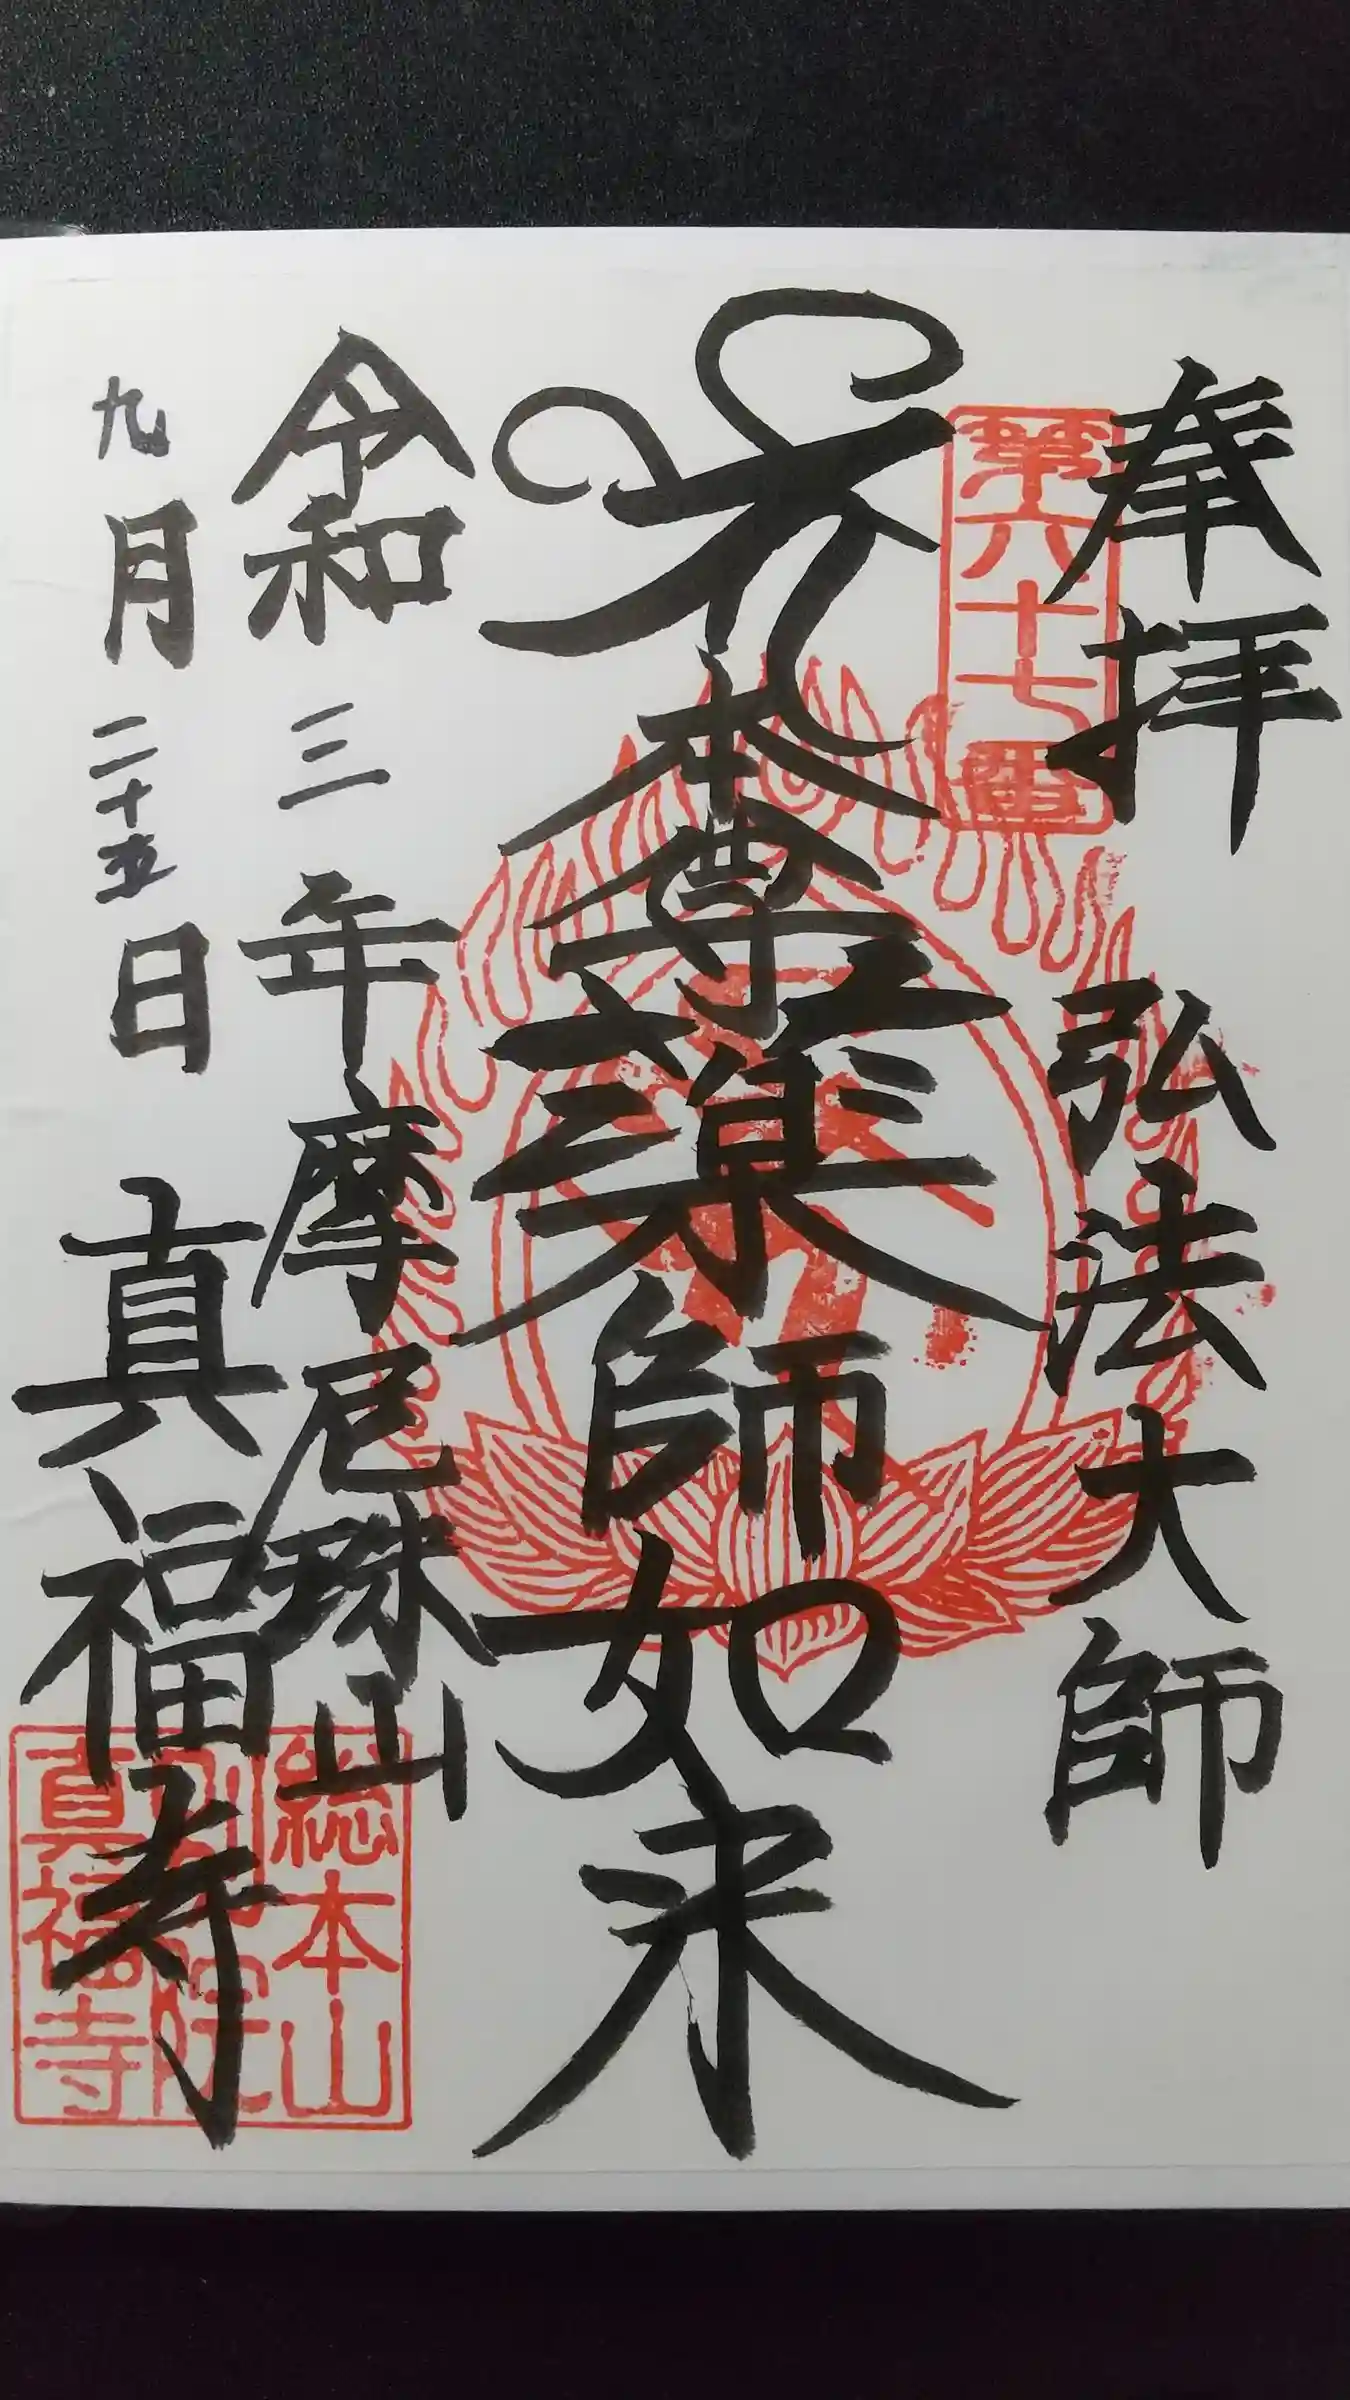 奉拝
弘法大師
第六十七番
本尊薬師如来
令和三年
摩尼珠山
九月二十五日
真福寺
総本山
別院
真福寺